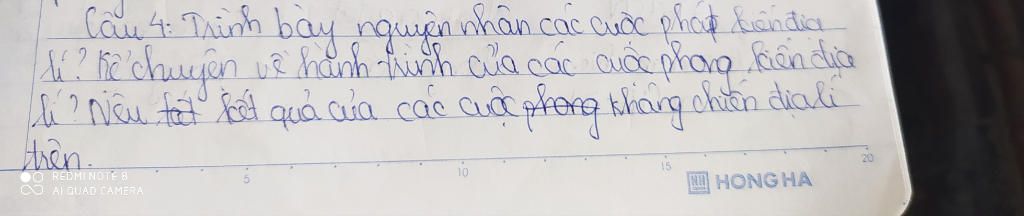 Câu 4: Trình bày nguyên nhân các cuộc phát kiến địa
lí? Kể chuyện về hành trình của các cuộc phong kiến địa
lí? Nêu kết quả của các cuộc phong kháng chiến địa lí
trên.
5 10 15 20
REDMI NOTE 8
AI QUAD CAMERA
HONG HA